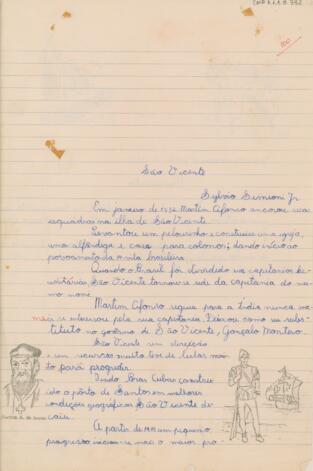 100
São Vicente
Sylvio Simioni Jr
Em janeiro de 1532 Martim Afonso ancorou sua
esquadra na ilha de São Vicente.
Levantou um pelourinho e construiu uma igreja,
uma alfândega e casa para colonos; dando início ao
povoamento da costa brasileira.
Quando o Brasil foi dividido em capitanias he-
reditárias, São Vicente tornou-se sede da capitania do mes-
mo nome
Martim Afonso seguiu para a Índia nunca
mais se interessou pela sua capitania. Deixou como seu subs-
tituto no governo de São Vicente, Gonçalo Monteiro.
São Vicente em direção
e um sucesso muito teve de lutar mui-
to para progredir.
Tendo Brás Cubas construí-
do o pôrto de Santos em melhores
condições geográficas São Vicente de-
caiu.
A partir de um pequeno
progresso iniciou-se mas o maior pro-